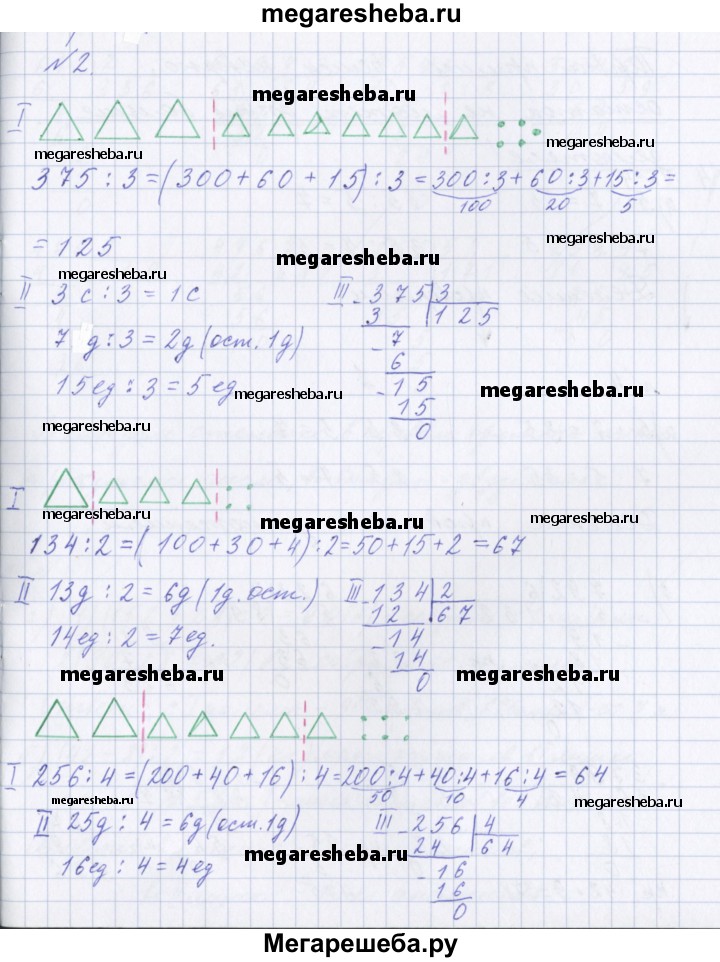 megaresheba.ru
№2.
megaresheba.ru
I
megaresheba.ru
megaresheba.ru
375 : 3 = (300 + 60 + 15) : 3 = 300 : 3 + 60 : 3 + 15 : 3 =
100 20 5
megaresheba.ru
= 125
megaresheba.ru
megaresheba.ru
II 3 с : 3 = 1 с
7 д : 3 = 2 д (ост. 1 д)
15 ед : 3 = 5 ед
III - 375 | 3
3 | 125
- 7
6
- 15
15
0
megaresheba.ru
megaresheba.ru
megaresheba.ru
I
megaresheba.ru
megaresheba.ru
megaresheba.ru
134 : 2 = (100 + 30 + 4) : 2 = 50 + 15 + 2 = 67
II 13 д : 2 = 6 д (1 д. ост.)
14 ед : 2 = 7 ед.
III - 134 | 2
12 | 67
- 14
14
0
megaresheba.ru
megaresheba.ru
I 256 : 4 = (200 + 40 + 16) : 4 = 200 : 4 + 40 : 4 + 16 : 4 = 64
50 10 4
megaresheba.ru
megaresheba.ru
II 25 д : 4 = 6 д (ост. 1 д)
16 ед : 4 = 4 ед
III - 256 | 4
24 | 64
- 16
16
0
megaresheba.ru
megaresheba.ru
Мегарешеба.ру